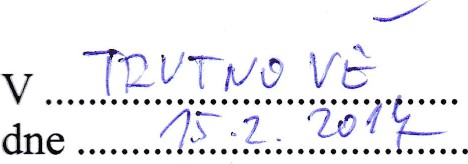 V TRUTNOVĚ
dne 15.2. 2017